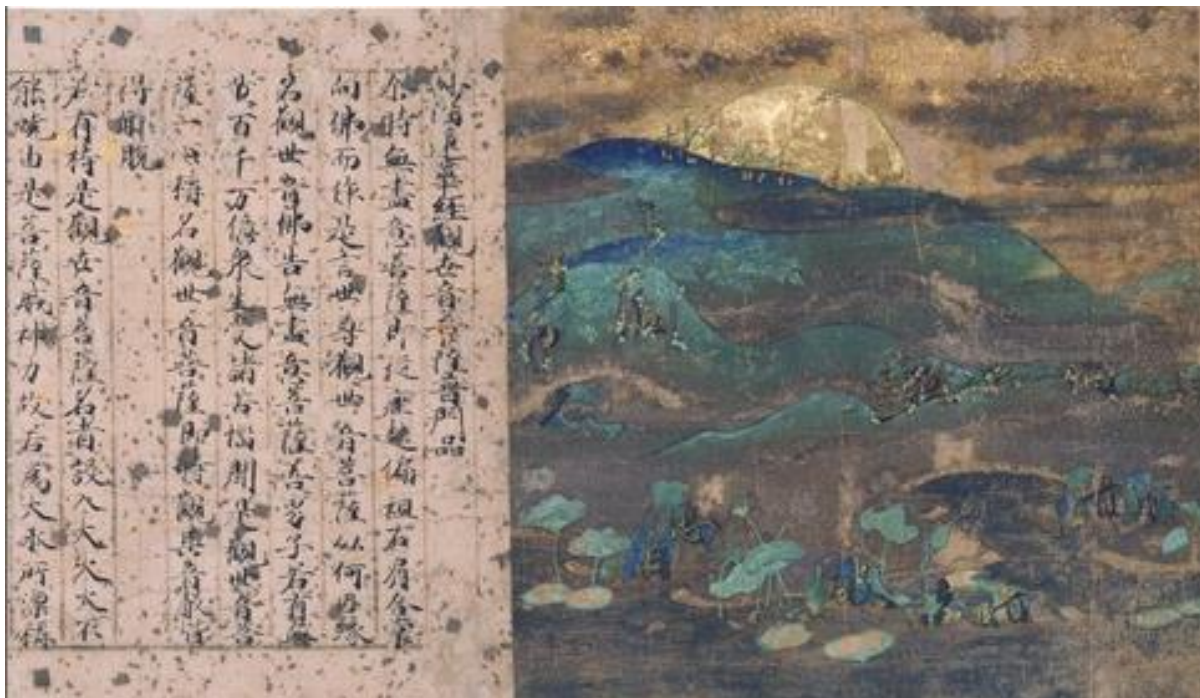 妙法蓮華經觀世音菩薩普門品
尒時無盡意菩薩即從座起偏袒右肩合掌
向佛而作是言世尊觀世音菩薩以何因緣
名觀世音佛告無盡意菩薩善男子若有無
量百千万億衆生受諸苦惱聞是觀世音菩
薩一心稱名觀世音菩薩即時觀其音聲皆
得解脱
若有持是觀世音菩薩名者設入大火火不
能燒由是菩薩威神力故若爲大水所漂稱